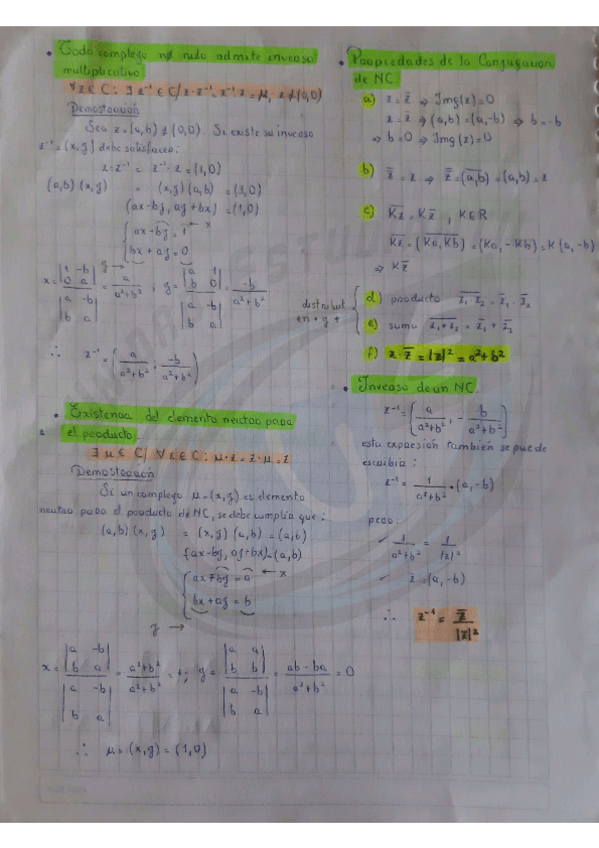 • Todo complejo no nulo admite inverso
multiplicativo
∀z∈C: ∃ z⁻¹∈C / z·z⁻¹=z⁻¹·z=μ, z≠(0,0)
Demostración
Sea z=(a,b)≠(0,0). Si existe su inverso
z⁻¹=(x,y) debe satisfacer:
z·z⁻¹ = z⁻¹·z = (1,0)
(a,b)(x,y) = (x,y)(a,b) = (1,0)
(ax-by, ay+bx) = (1,0)
{ ax-by = 1 ← x
bx+ay = 0
y →
x = |1 -b; 0 a| / |a -b; b a| = a/(a²+b²) ; y = |a 1; b 0| / |a -b; b a| = -b/(a²+b²)
∴ z⁻¹ = (a/(a²+b²) ; -b/(a²+b²))
• Existencia del elemento neutro para
el producto
∃ μ∈C / ∀z∈C: μ·z=z·μ=z
Demostración
Si un complejo μ=(x,y) es elemento
neutro para el producto de NC, se debe cumplir que:
(a,b)(x,y) = (x,y)(a,b) = (a,b)
(ax-by, ay+bx)=(a,b)
{ ax-by = a ← x
bx+ay = b
y →
x = |a -b; b a| / |a -b; b a| = (a²+b²)/(a²+b²) = 1; y = |a a; b b| / |a -b; b a| = (ab-ba)/(a²+b²) = 0
∴ μ=(x,y)=(1,0)
• Propiedades de la Conjugación
de NC
a) z = z̄ ⇒ Img(z)=0
z = z̄ ⇒ (a,b)=(a,-b) ⇒ b=-b
⇒ b=0 ⇒ Img(z)=0
b) z̿ = z ⇒ z̿=(a,b)=(a,b)=z
c) K̅z̅ = Kz̄ , K∈R
K̅z̅ = (Ka,Kb) = (Ka,-Kb)=K(a,-b)
⇒ Kz̄
distribut
en · y +
d) producto z̅₁̅·̅z̅₂̅ = z̄₁·z̄₂
e) suma z̅₁̅+̅z̅₂̅ = z̄₁+z̄₂
f) z·z̄=|z|²=a²+b²
• Inverso de un NC
z⁻¹=(a/(a²+b²), -b/(a²+b²))
esta expresión también se puede
escribir:
z⁻¹ = 1/(a²+b²) · (a,-b)
pero:
✓ 1/(a²+b²) = 1/|z|²
✓ z̄=(a,-b)
∴ z⁻¹= z̄/|z|²